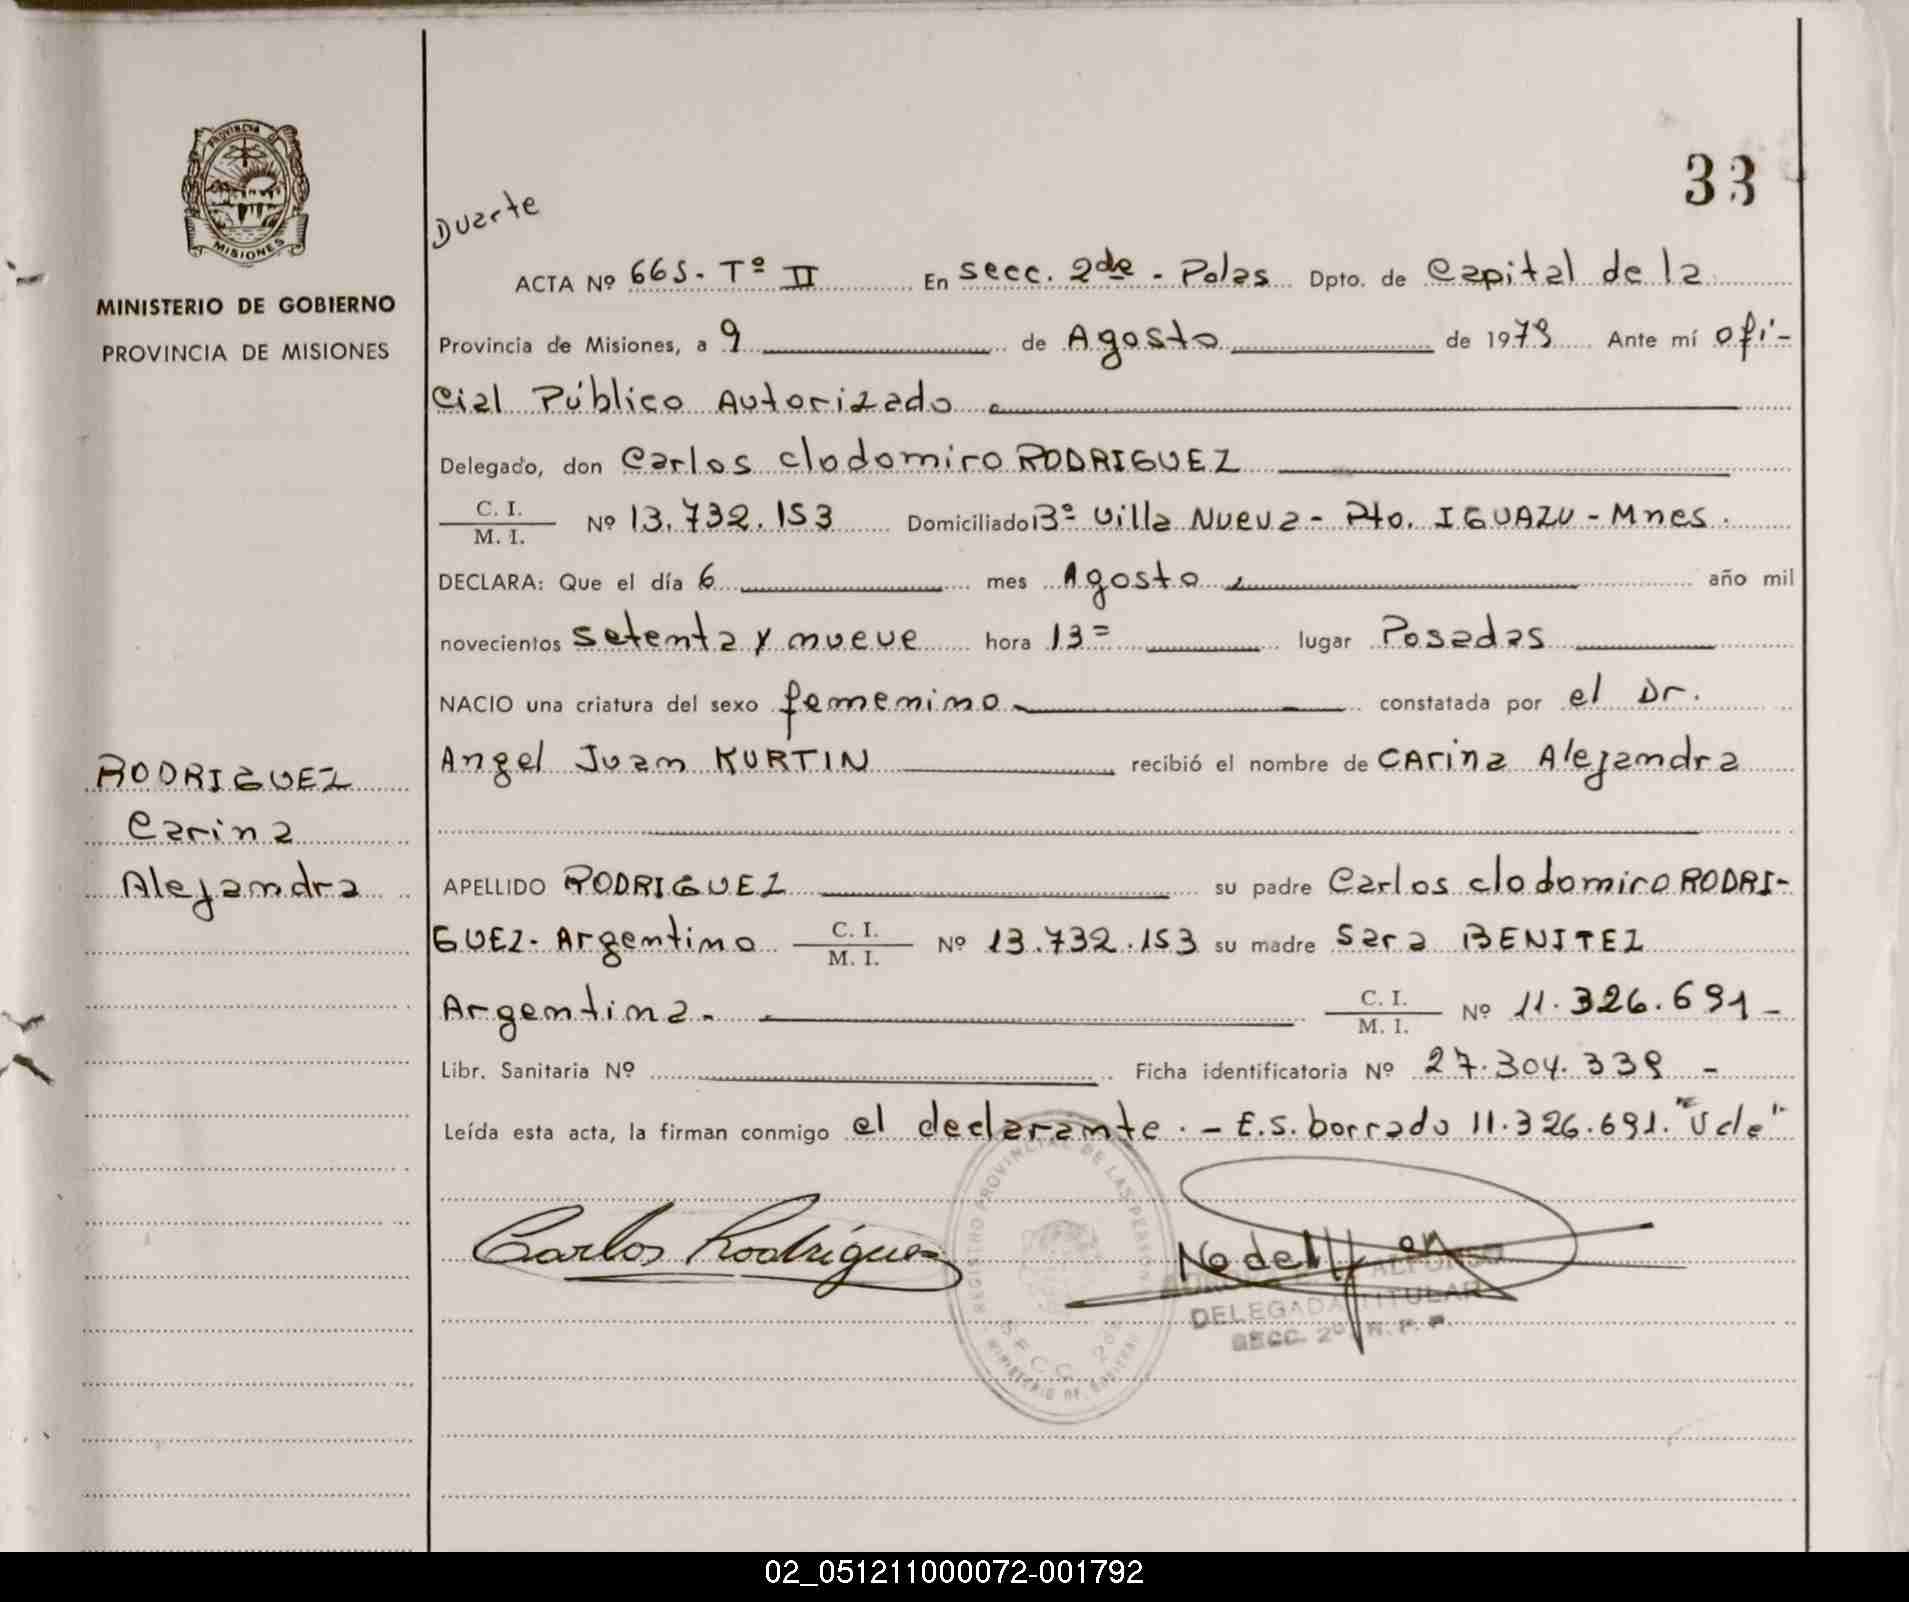 33
PROVINCIA D
MISIONES
MINISTERIO DE GOBIERNO
PROVINCIA DE MISIONES
Duarte
ACTA Nº 665. Tº II En secc. 2da - Pdas Dpto. de Capital de la
Provincia de Misiones, a 9 de Agosto de 1979 Ante mí ofi-
cial Público Autorizado
Delegado, don Carlos Clodomiro RODRIGUEZ
C. I.
M. I. Nº 13.732.153 Domiciliado Bº Villa Nueva - Pto. IGUAZU - Mnes.
DECLARA: Que el día 6 mes Agosto año mil
novecientos setenta y nueve hora 13= lugar Posadas
NACIO una criatura del sexo femenino constatada por el Dr.
Angel Juan KURTIN recibió el nombre de CArina Alejandra
RODRIGUEZ
Carina
Alejandra
APELLIDO RODRIGUEZ su padre Carlos Clodomiro RODRI-
GUEZ - Argentino C. I. / M. I. Nº 13.732.153 su madre Sara BENITEZ
Argentina. - C. I. / M. I. Nº 11.326.691 -
Libr. Sanitaria Nº Ficha identificatoria Nº 27.304.339 -
Leída esta acta, la firman conmigo el declarante. - E.S. borrado 11.326.691. "Vale"
Carlos Rodriguez
REGISTRO PROVINCIAL DE LAS PERSONAS
SECC. 2da
MINISTERIO DE GOBIERNO
ALFONSO
DELEGADA TITULAR
SECC. 2º R. P. P.
02_051211000072-001792